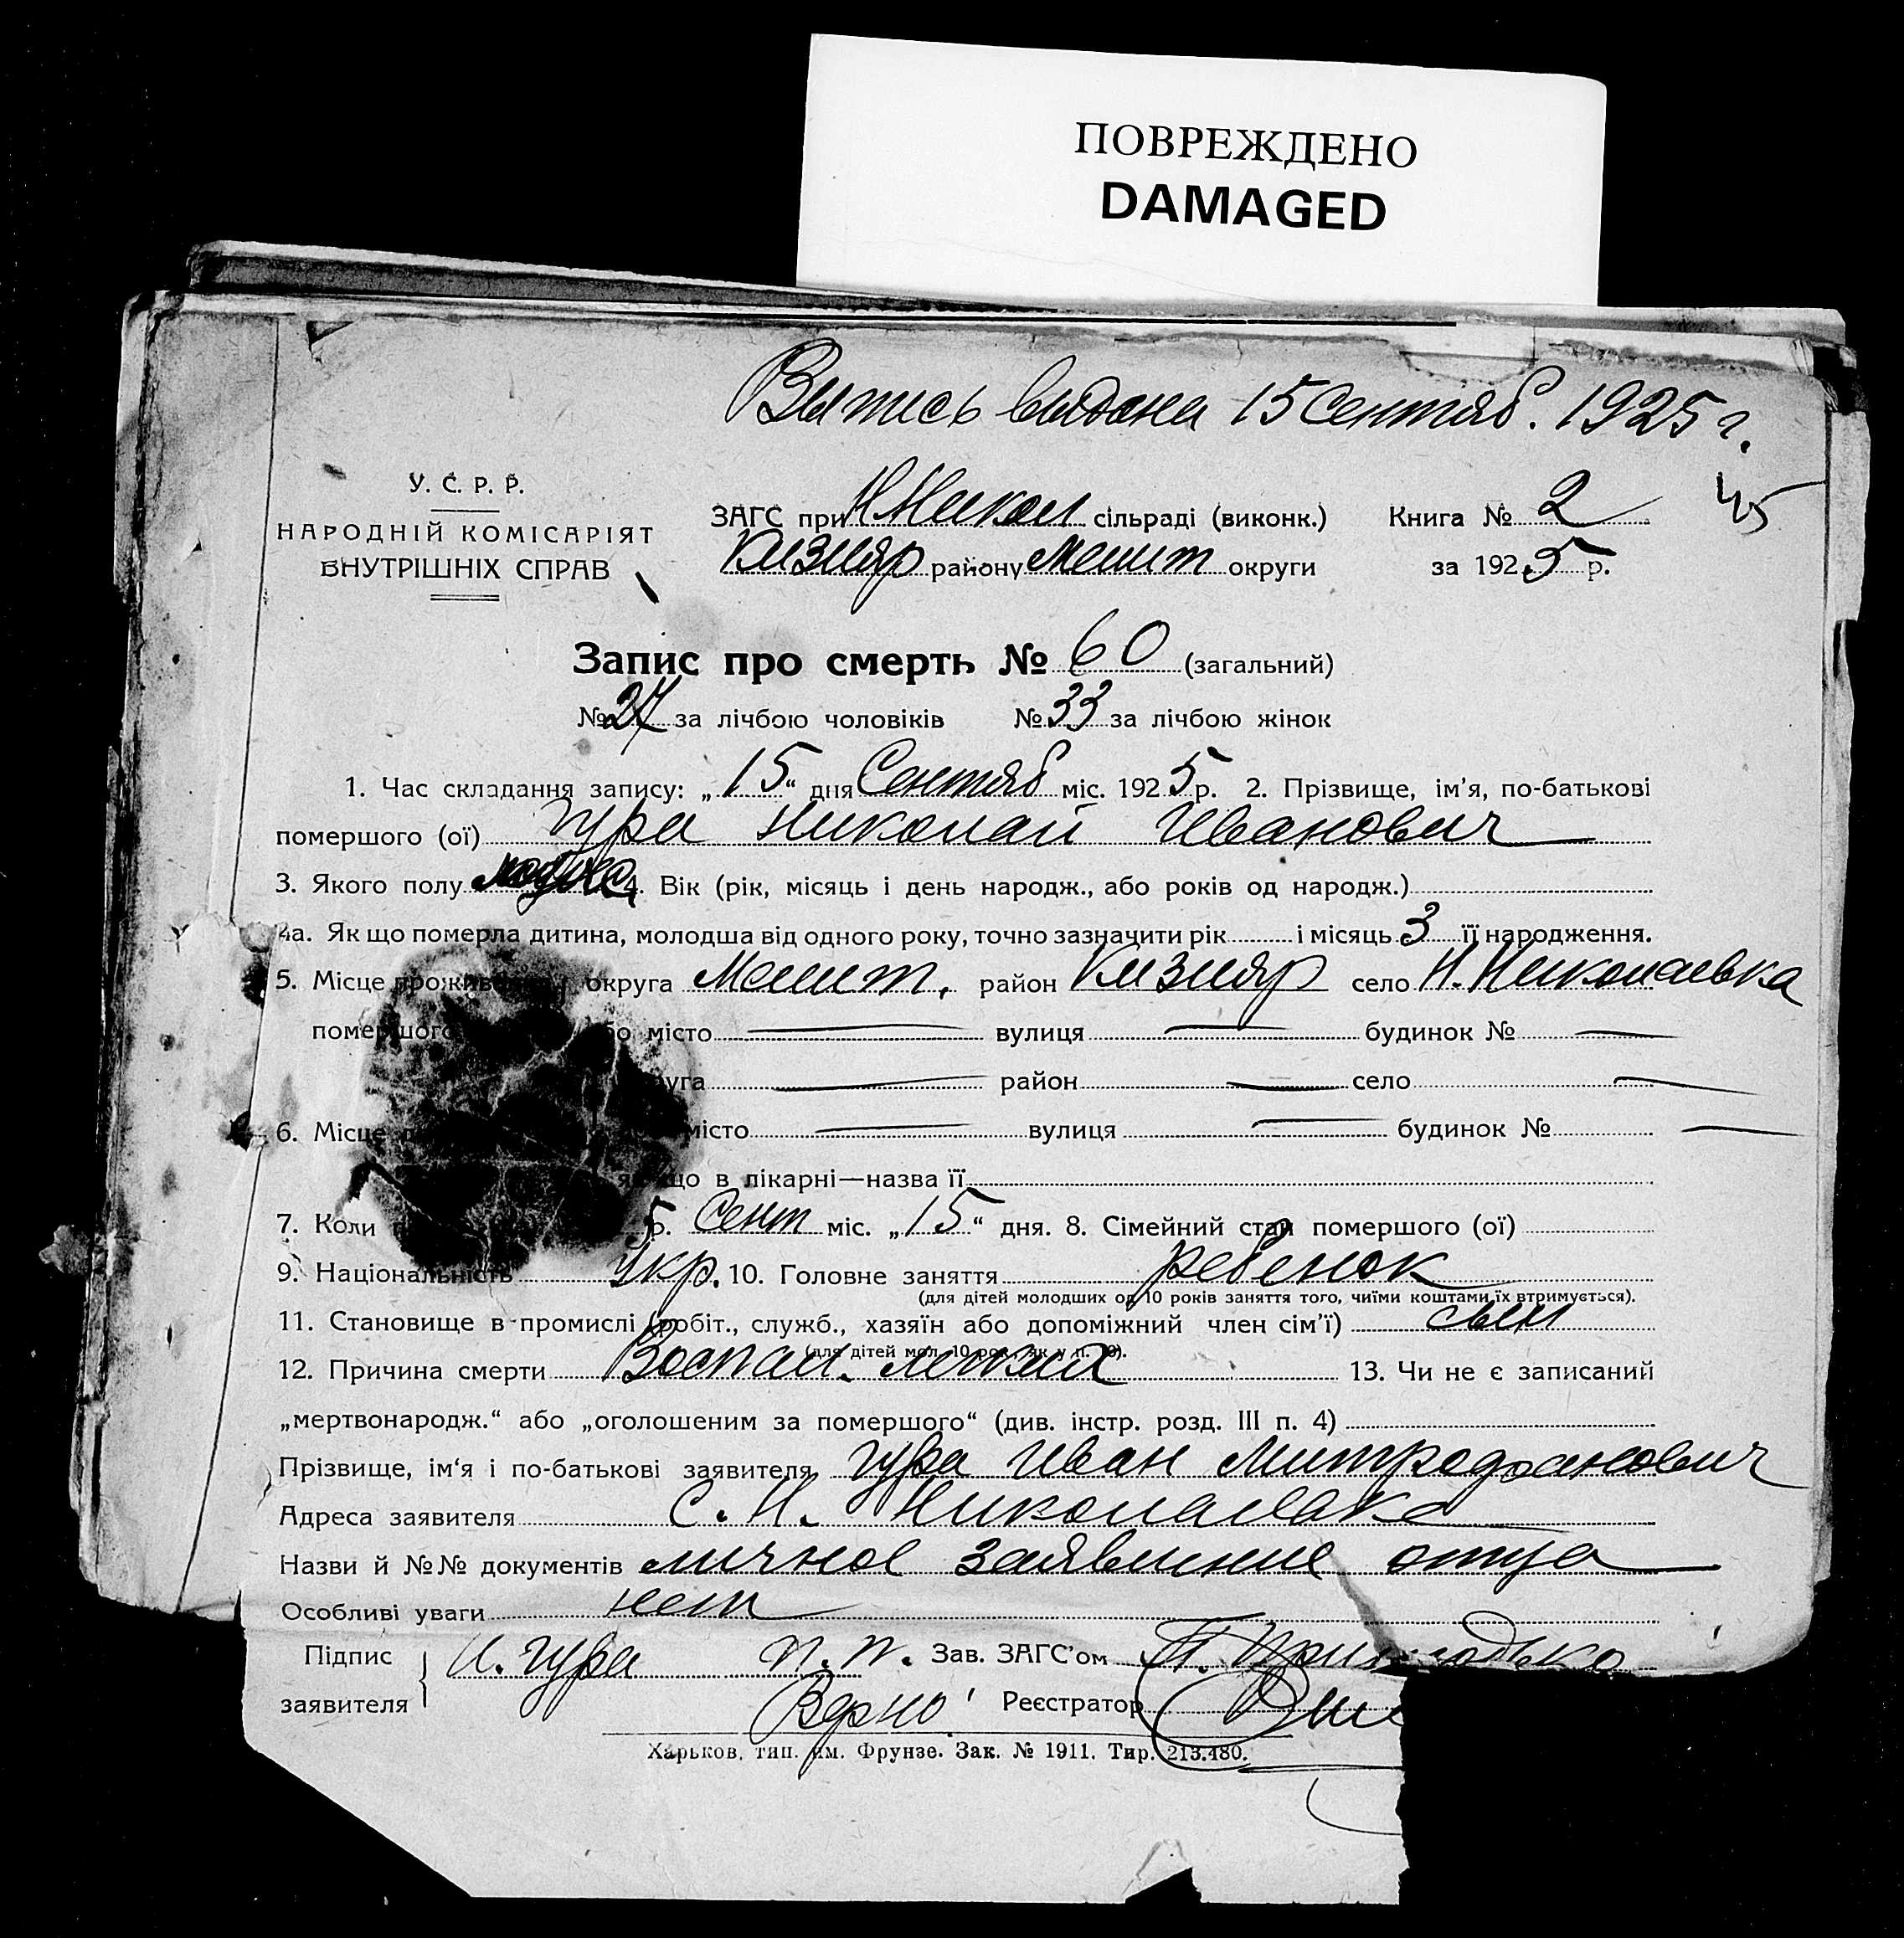 ПОВРЕЖДЕНО
DAMAGED
Выпись выдана 15 Сентяб. 1925 г.
45
У. С. Р. Р.
НАРОДНІЙ КОМІСАРІЯТ
ВНУТРІШНІХ СПРАВ
ЗАГС при Н Никол сільраді (виконк.) Книга № 2
Кизияр району Мелит округи за 1925 р.
Запис про смерть № 60 (загальний)
№ 27 за лічбою чоловіків № 33 за лічбою жінок
1. Час складання запису: „15“ дня Сентяб міс. 1925 р. 2. Прізвище, ім'я, по-батькові
помершого (ої) Гура Николай Иванович
3. Якого полу 4. Вік (рік, місяць і день народж., або років од народж.)
4а. Як що померла дитина, молодша від одного року, точно зазначити рік і місяць 3 її народження.
5. Місце округа Мелит. район Кизияр село Н. Николаевка
помершого місто вулиця будинок №
район село
6. Місце місто вулиця будинок №
в лікарні—назва її
7. Коли 5 р. Сент міс. „15“ дня. 8. Сімейний стан помершого (ої)
9. Національність Укр. 10. Головне заняття ребенок
(для дітей молодших од 10 років заняття того, чиїми коштами їх втримується).
11. Становище в промислі (робіт., служб., хазяїн або допоміжний член сім'ї) сын
(для дітей мол. 10 рок., як у п. 10).
12. Причина смерти Воспал. легких 13. Чи не є записаний
„мертвонародж.“ або „оголошеним за помершого“ (див. інстр. розд. III п. 4)
Прізвище, ім'я і по-батькові заявителя Гура Иван Митрофанович
Адреса заявителя С. Н. Николаевка
Назви й №№ документів личное заявление отца
Особливі уваги нет
Підпис заявителя И. Гура п. п. Зав. ЗАГС'ом П.
Верно! Реєстратор
Харьков, тип. им. Фрунзе. Зак. № 1911. Тир. 213.480.